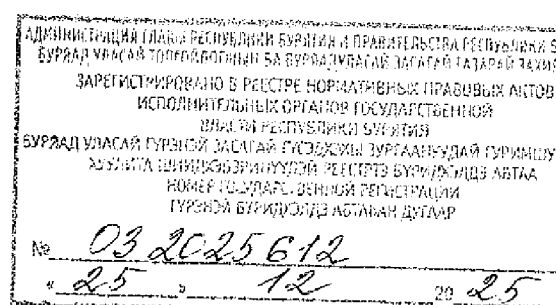 АДМИНИСТРАЦИЯ ГЛАВЫ РЕСПУБЛИКИ БУРЯТИЯ И ПРАВИТЕЛЬСТВА РЕСПУБЛИКИ
БУРЯАД УЛАСАЙ БА БУРЯАД УЛАСАЙ ЗАСАГАЙ ГАЗАРАЙ
ЗАРЕГИСТРИРОВАНО В РЕЕСТРЕ НОРМАТИВНЫХ ПРАВОВЫХ АКТОВ
ИСПОЛНИТЕЛЬНЫХ ОРГАНОВ ГОСУДАРСТВЕННОЙ
ВЛАСТИ РЕСПУБЛИКИ БУРЯТИЯ
БУРЯАД УЛАСАЙ ГҮРЭНЭЙ ЗАСАГАЙ
РЕЕСТРТЭ БҮРИДХЭЛДЭ АБТАА
НОМЕР ГОСУДАРСТВЕННОЙ РЕГИСТРАЦИИ
ГҮРЭНЭЙ БҮРИДХЭЛДЭ АБТАҺАН ДУГААР
№ 03 2025 612
« 25 » 12 20 25